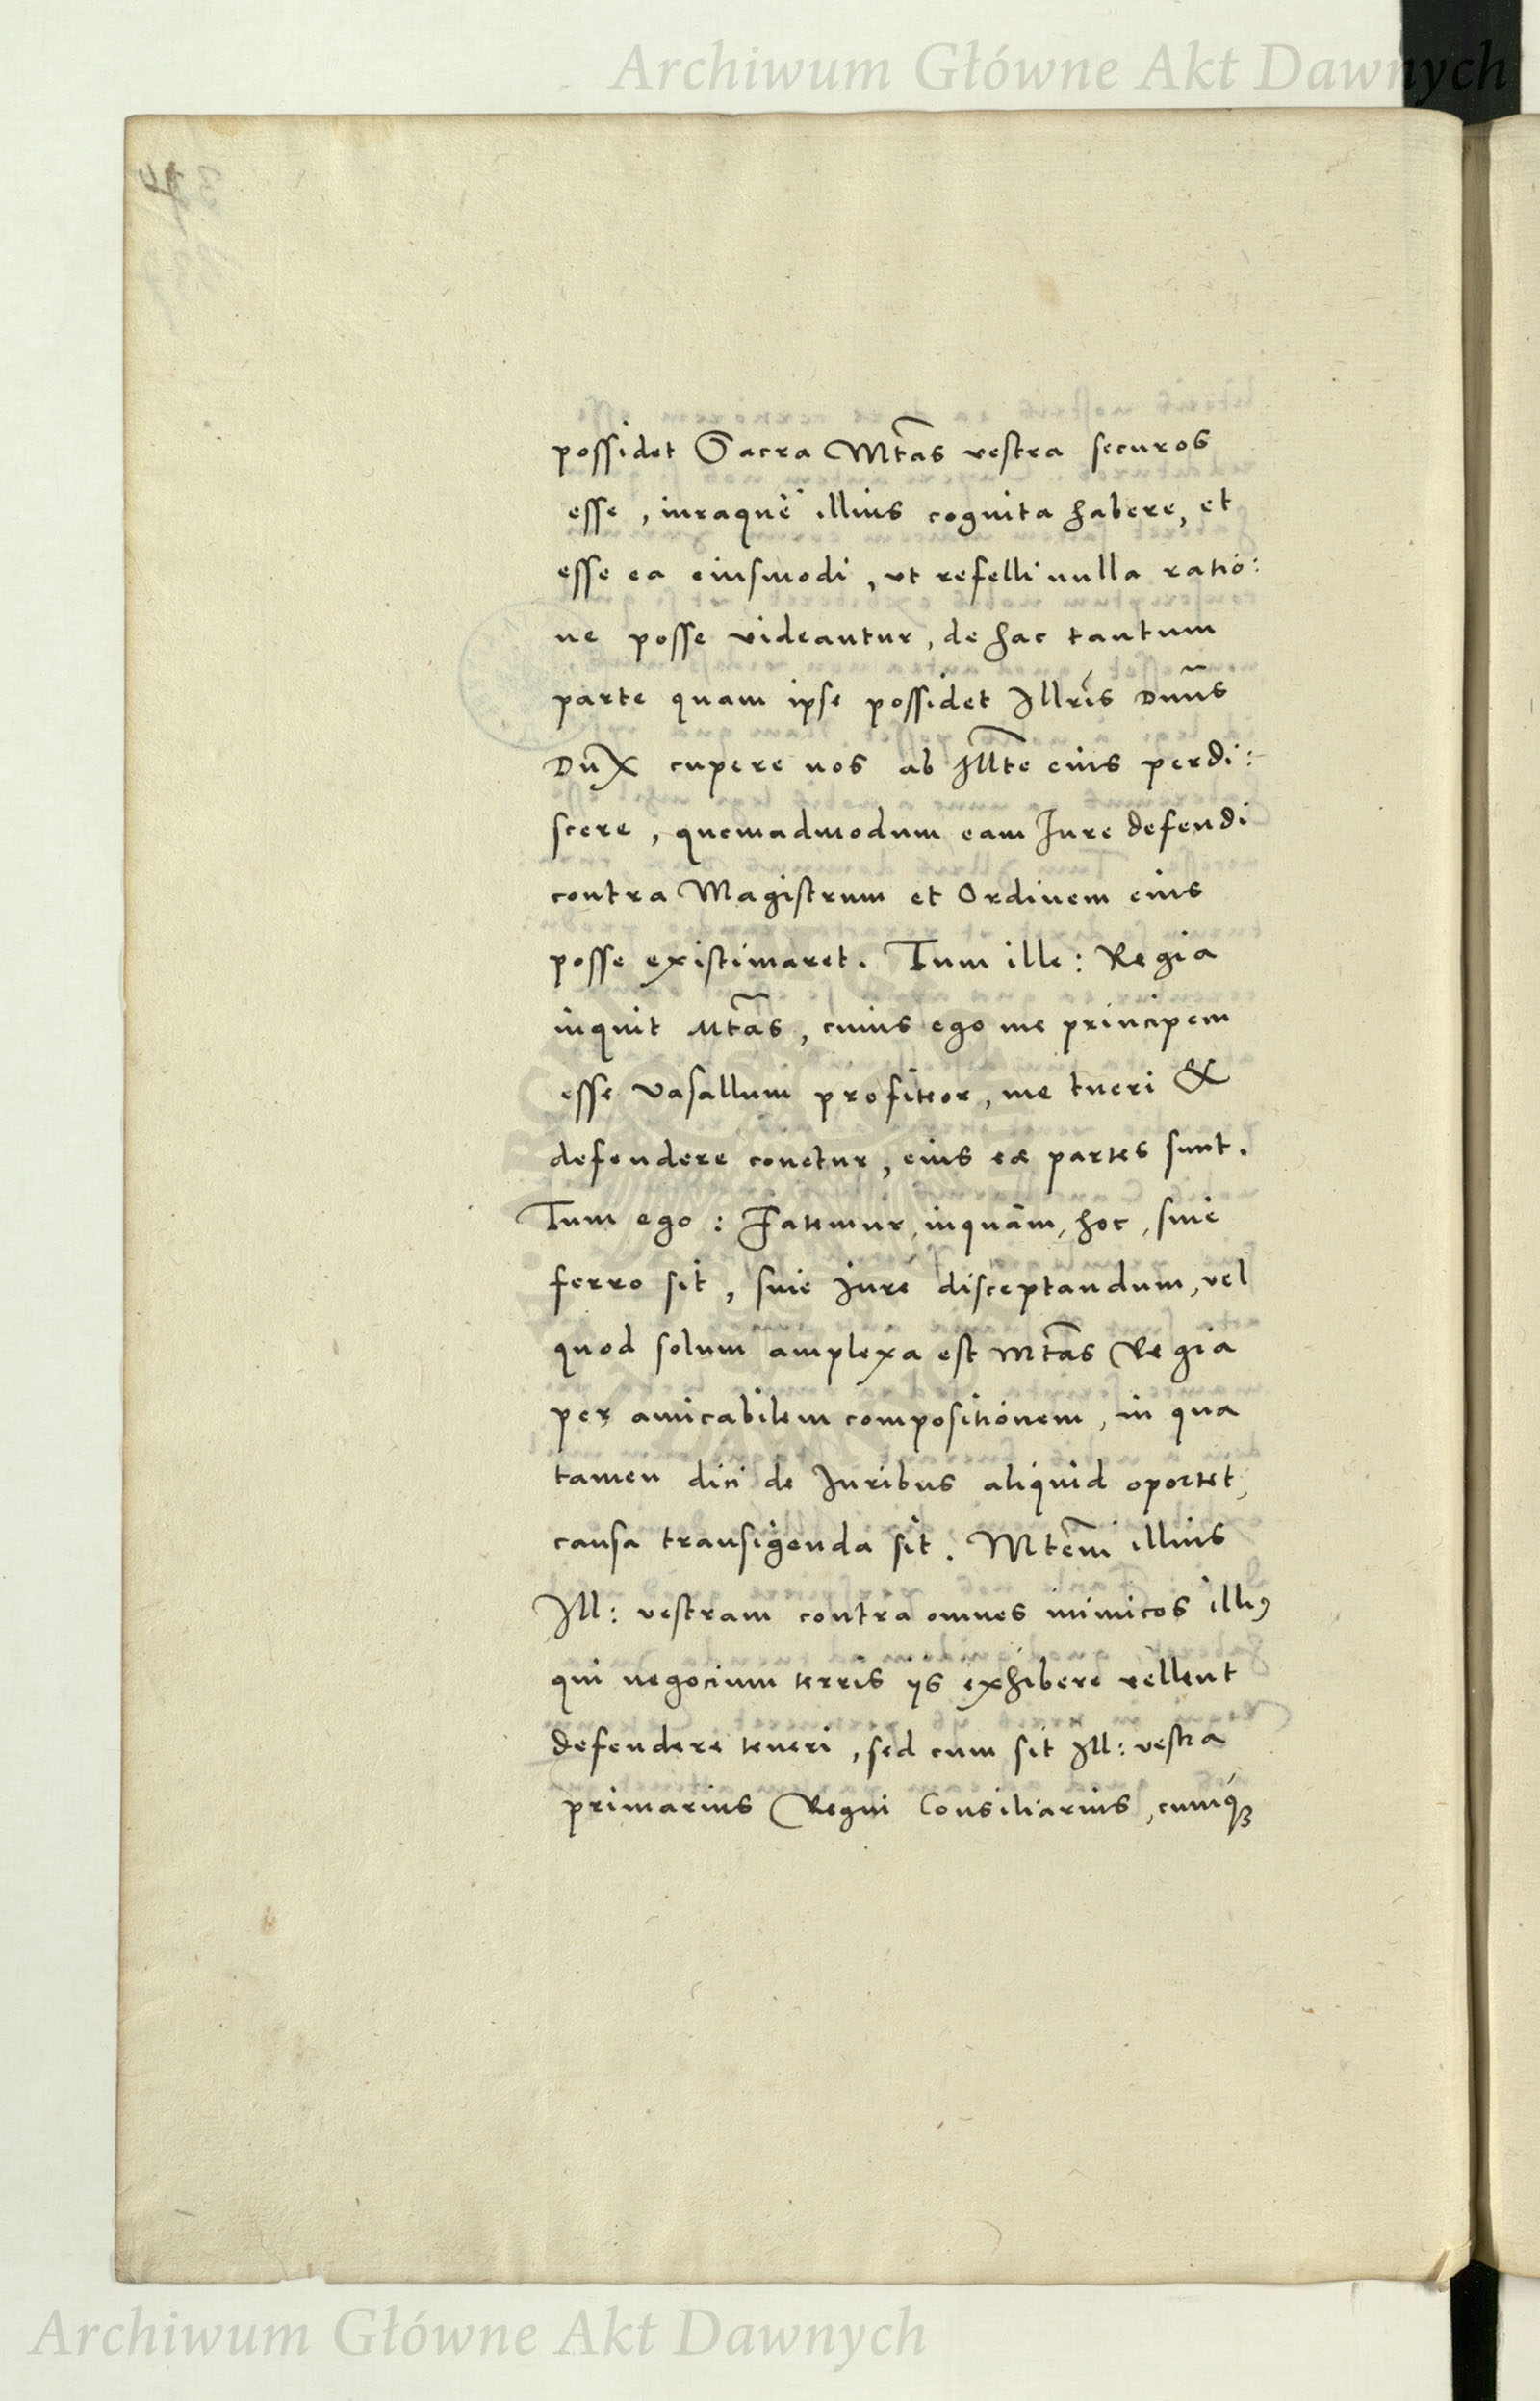 Archiwum Główne Akt Dawnych
possidet Sacra Mtas vestra securos
esse, iuraque illius cognita habere, et
esse ea eiusmodi, ut refelli nulla ratio:
ne posse videantur, de hac tantum
parte quam ipse possidet Illris Dnus
Dux cupere nos ab Illte eius perdi:
scere, quemadmodum eam Jure defendi
contra Magistrum et Ordinem eius
posse existimaret. Tum ille: Regia
inquit Mtas, cuius ego me principem
esse vasallum profiteor, me tueri &
defendere conetur, eius eæ partes sunt.
Tum ego: Fatemur, inquam, hoc, siue
ferro sit, siue Jure disceptandum, vel
quod solum amplexa est Mtas Regia
per amicabilem compositionem, in qua
tamen dici de Juribus aliquid oportet,
causa transigenda sit. Mtem illius
Ill: vestram contra omnes inimicos illi9
qui negocium terris iis exhibere vellent
defendere teneri, sed cum sit Ill: vestra
primarius Regni Consiliarius, cumq3
Archiwum Główne Akt Dawnych